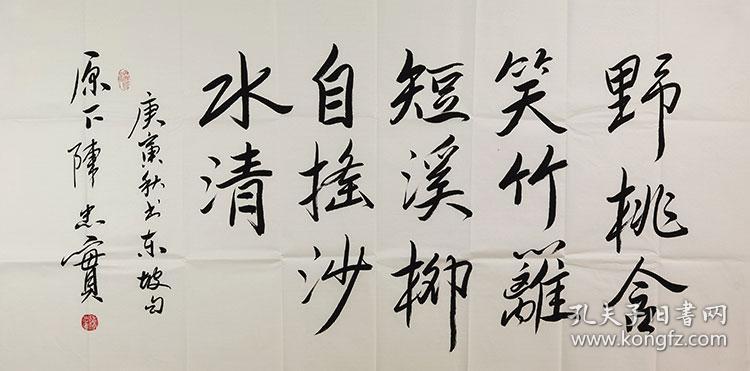 野桃含
笑竹籬
短溪柳
自摇沙
水清
庚寅秋书东坡句
原下陈忠實
孔夫子旧書网
www.kongfz.com